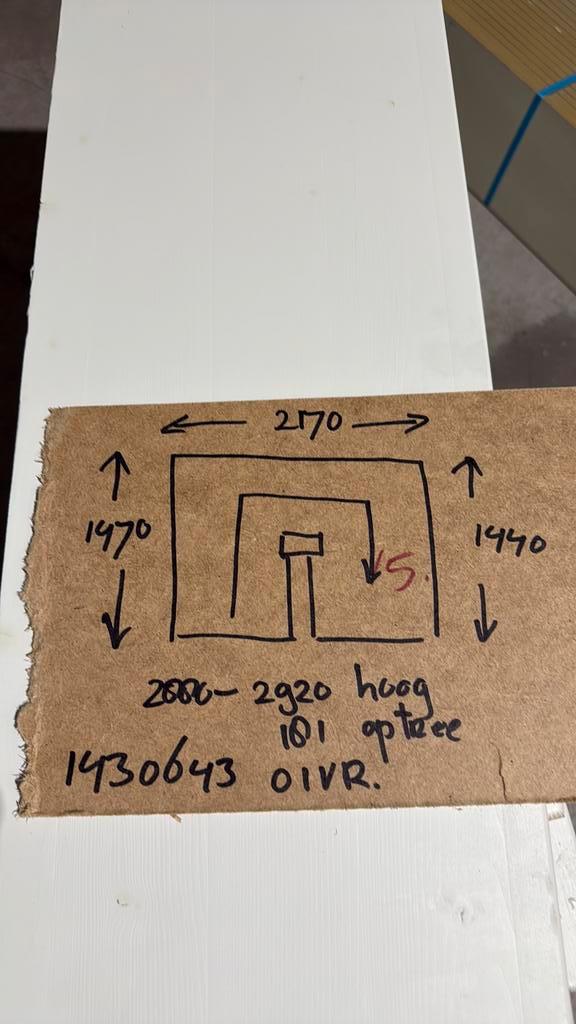 2170
1470
1440
5.
2920 hoog
optree
1430643 01VR.